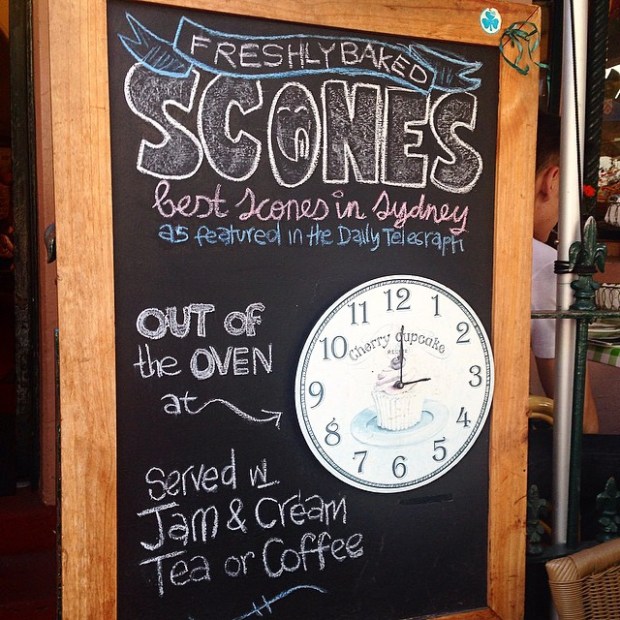 FRESHLY BAKED
SCONES
best scones in sydney
as featured in the Daily Telegraph
OUT OF
the OVEN
at
12
1
2
3
4
5
6
7
8
9
10
Cherry Cupcake
served w
Jam & Cream
Tea or Coffee